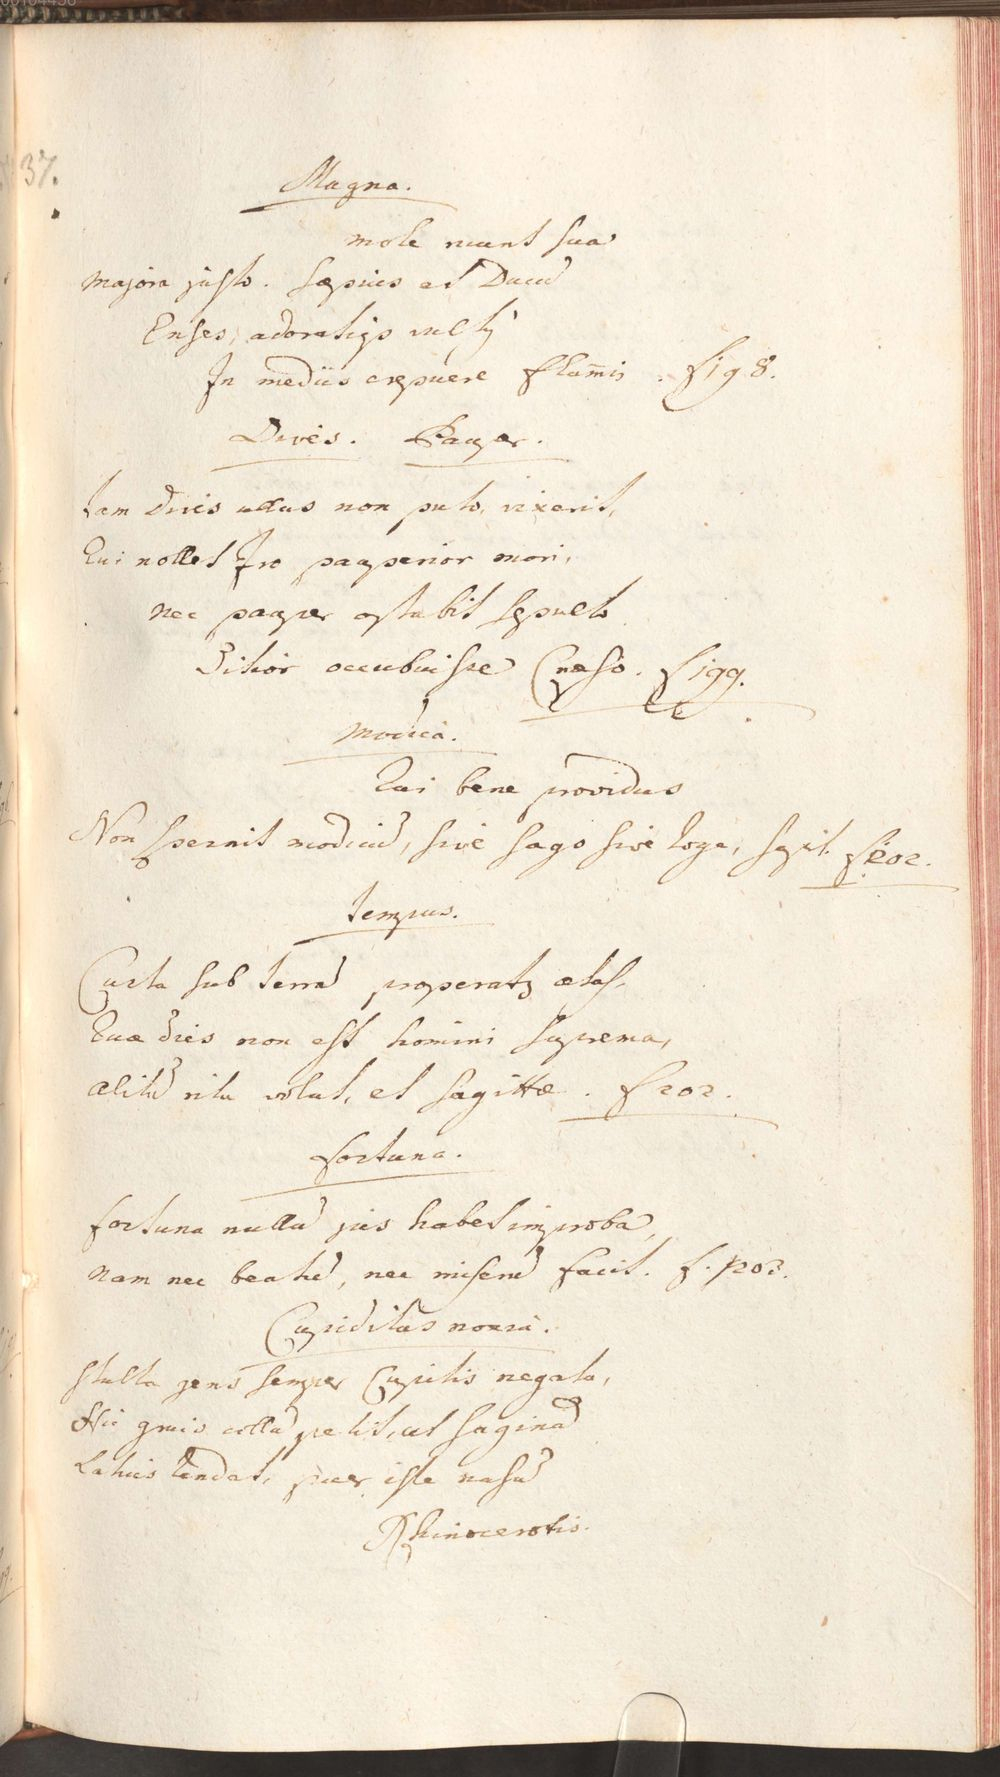 37.
Magna.
mole ruunt sua
Majora justo. Sæpius et Ducū
Enses, adoratiqs vultq
In mediis crepuere flam̄is. f 198.
Dives. Pauper.
Tam dives ullus non puto, vixerit,
Qui nollet Iro pauperior mori,
nec pauper optabit sepulto
Ditior occubuisse Cræso. f 199.
Modica.
Qui bene providus
Non spernit modicū, sive sago sive toga, sapit. f 202.
Tempus.
Curta sub terrā properatq ætas,
Quæ dies non est homini suprema,
alitū ritu volat, et sagittæ. f 202.
Fortuna.
Fortuna nullū jus habet improba,
Nam nec beatū, nec miserū facit. f. 203.
Cupiditas noxia.
Stulta gens semper Cupitis negata,
Hic gruis collū petit, ut saginā
Latius tendat, puer iste nasū
Rhinocerotis.